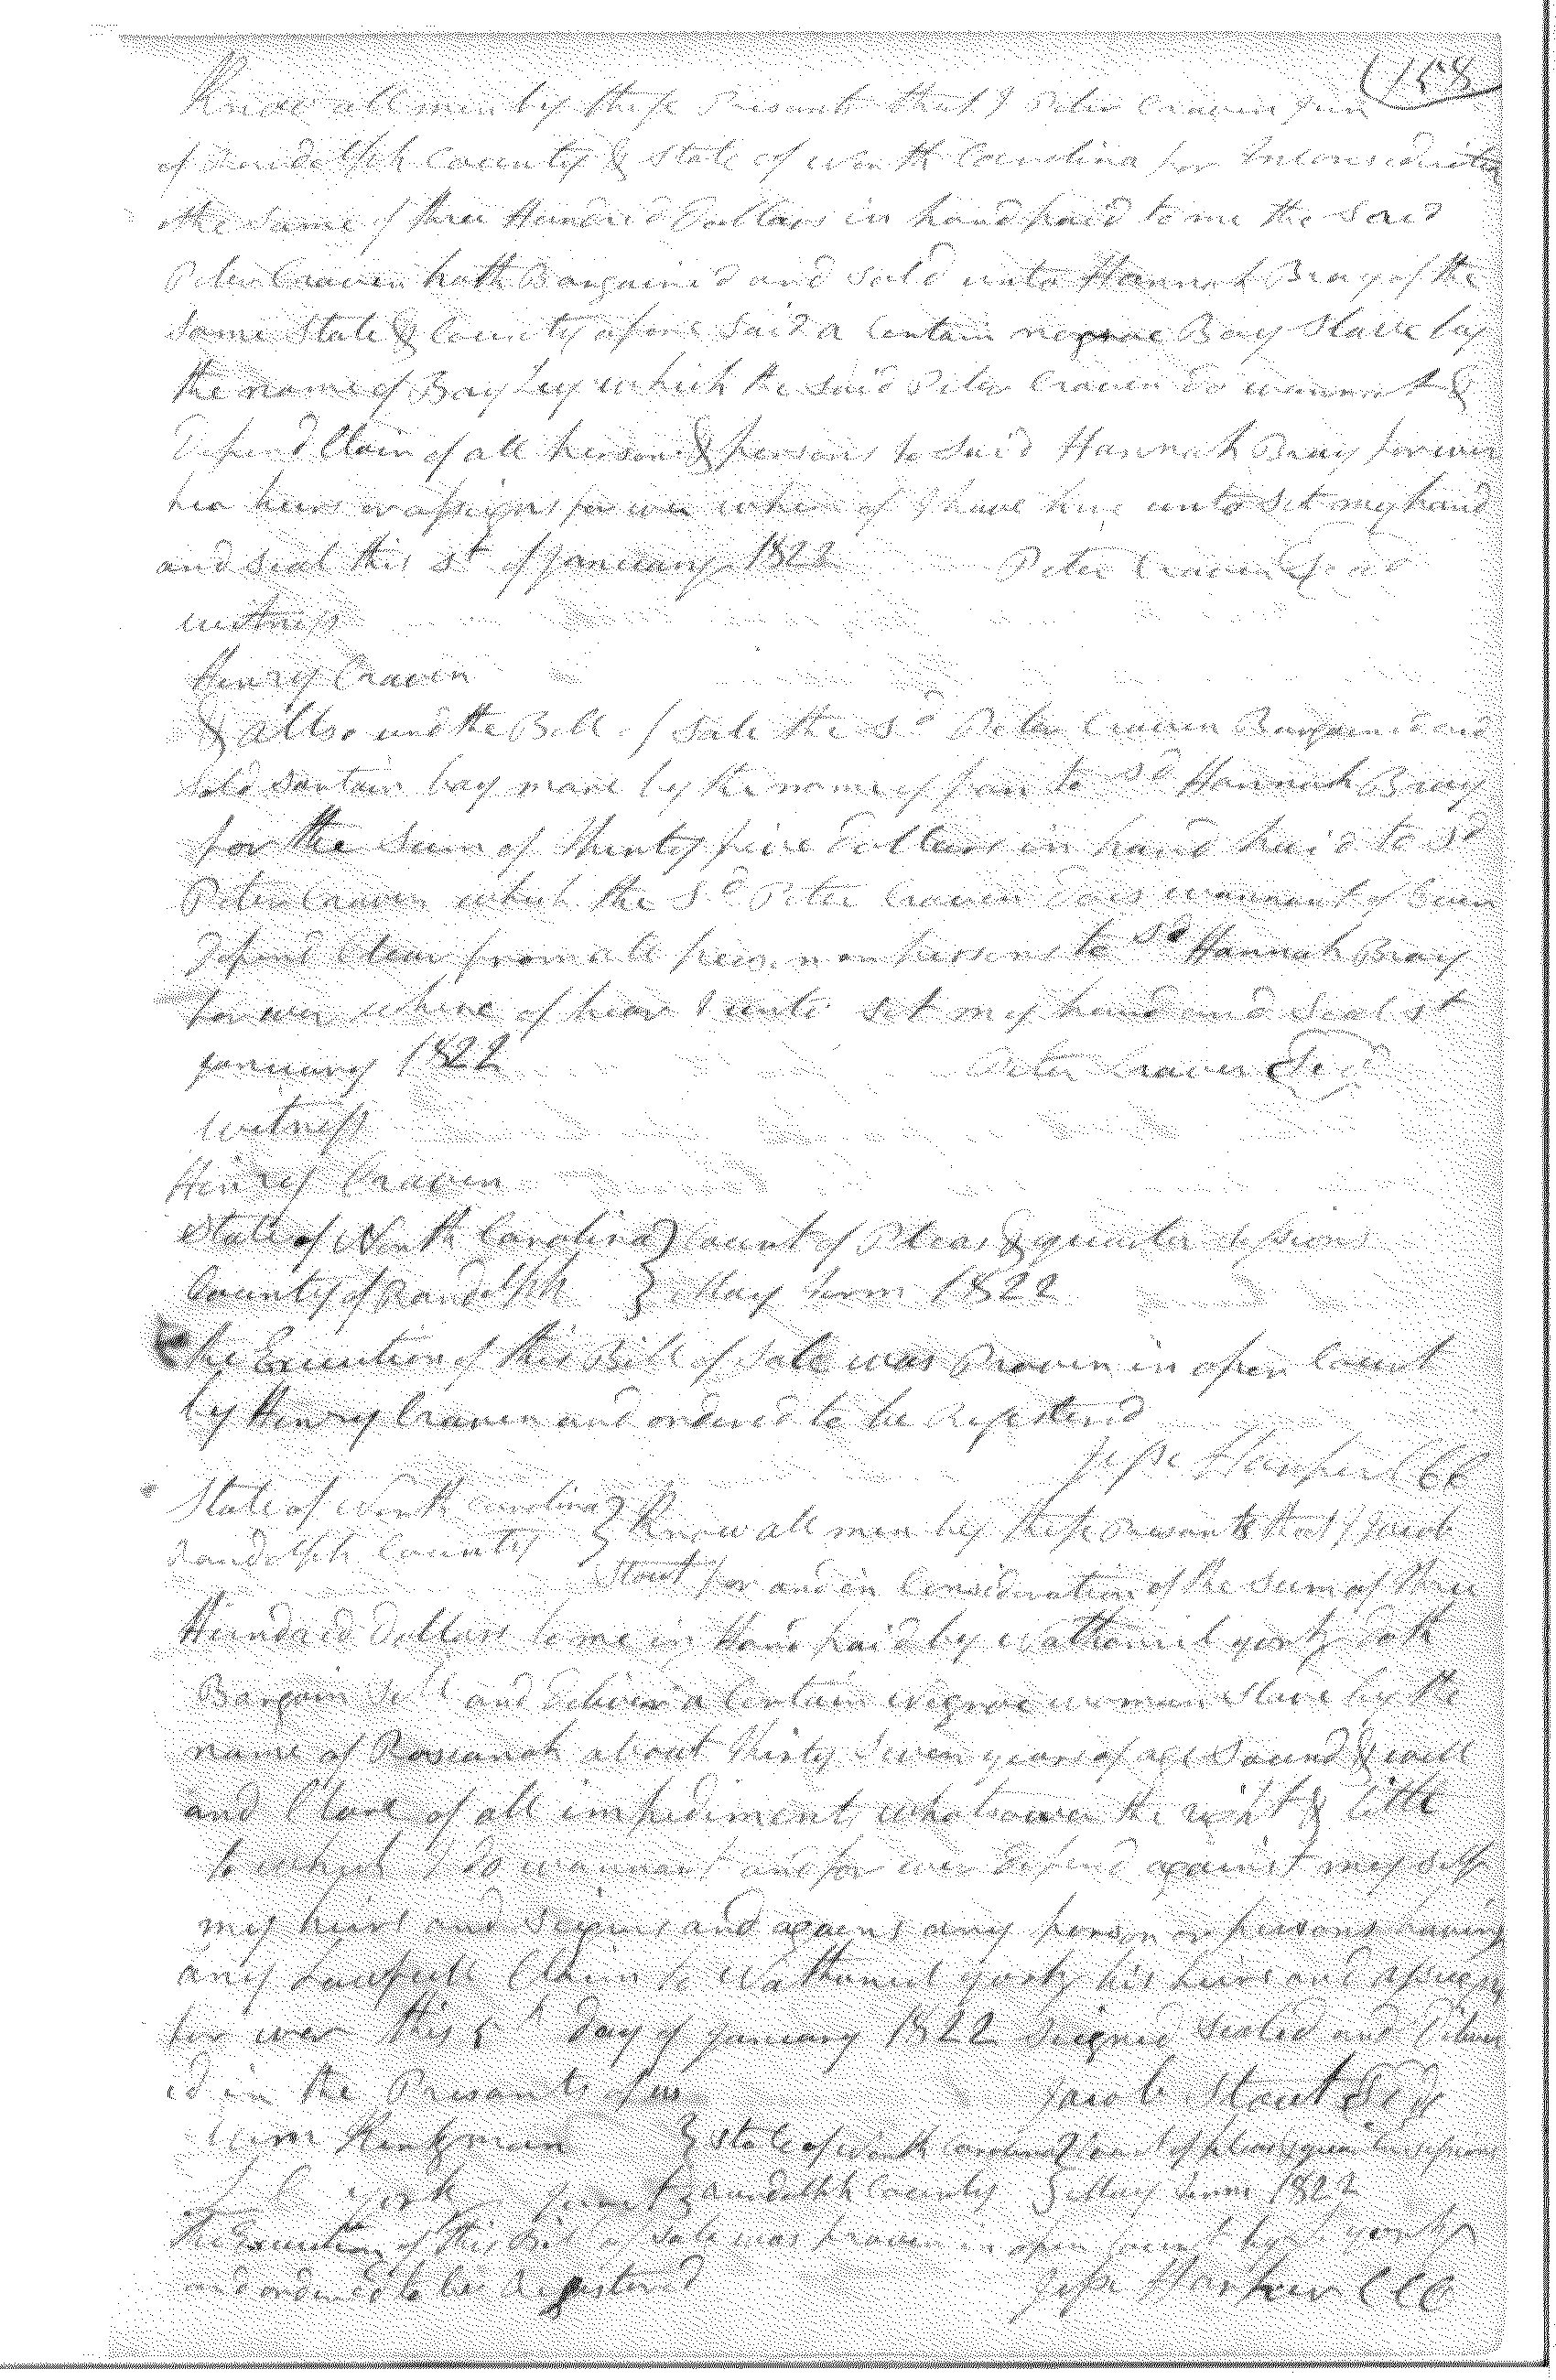 158
Know all men by these Presants that I Peter Craven Jun
of Randolph County & State of North Carolina for Inconsideration
the Same of three Hundred Dollars in hand paid to me the Said
Peter Craven hath Bargained and sold unto Hannah Bray of the
same State & County afore Said a Certain negroe Boy Slave by
the name of Boy which the said Peter Craven do warrant &
Defend Clair of all person & persons to said Hannah Bray forever
her heirs or assigns for ever where of I have here unto set my hand
and seal this st of January 1822 Peter Craven Seal
witness
Henry Craven
& allso und the Bill of Sale the sd Peter Craven Bargained and
Sold sartain bay mare by the name of fan to sd Hannah Bray
for the Sum of five Dollars in hand paid to sd
Peter Craven which the Sd Peter Craven does warrant
Defend Clear from all person or persons to sd Hannah Bray
for ever where of hear I unto set my hand and Seal st
January 1822 Peter Craven Seal
witness
Henry Craven
State of North Carolina } Court of Pleas & quarter sessions
County of Randolph } May term 1822
the Execution of this Bill of Sale was Proven in open Court
by Henry Craven and ordered to be Registered
Jesse Harper CCC
State of North Carolina } Know all men by these presants that I Jacob
Randolph County
Stout for and in Consideration of the Sum of three
Hundred Dollars to me in Hand paid by Nathaniel york doth
Bargain Sell and deliver a Certain Negroe woman slave by the
name of Roseanah about thirty Seven years of age Sound & well
and Clare of all impediments whatsoever the right & tittle
to which I do warrant and for ever Defend against my self
my heirs and Seigns and against any person or persons having
any Lawfull Claim to Nathaniel york his heirs and assigns
for ever this 5th day of January 1822 Seigned Sealed and Deliver
ed in the Presants of us Jacob Stout Seal
} State of North Carolina } Court of pleas & quarter sessions
York } Randolph County } May term 1822
the Execution of this Bill of Sale was proven in open Court by york
and ordered to be Registered Jesse Harper CCC